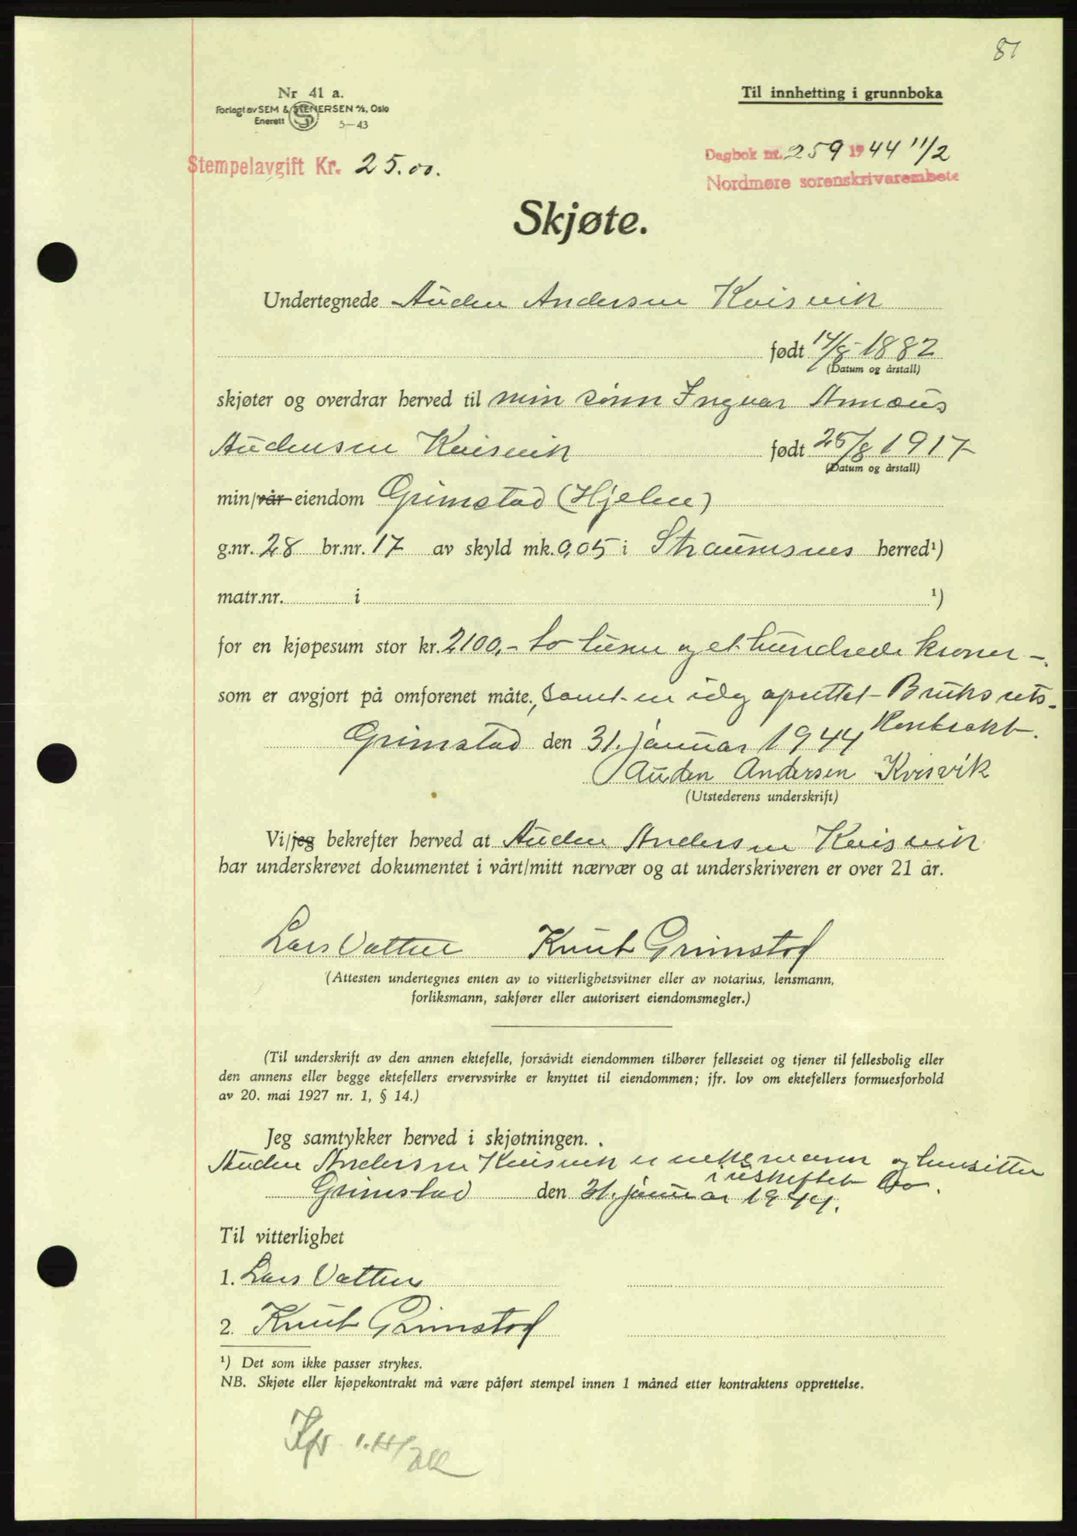 81
Nr 41 a.
Forlagt av SEM & STENERSEN A/S, Oslo
Enerett 5—43
Til innhefting i grunnboka
Stempelavgift Kr. 25.00.
Dagbok nr. 259 1944 11/2
Nordmøre sorenskrivarembete
Skjøte.
Undertegnede Auden Andersen Kvisvik
født 14/8 1882
(Datum og årstall)
skjøter og overdrar herved til min sønn Ingvar Annæus
Audensen Kvisvik født 25/8 1917
(Datum og årstall)
min/vår eiendom Grimstad (Hjelen)
g.nr. 28 br.nr. 17 av skyld mk. 0,05 i Straumsnes herred¹)
matr.nr. i ¹)
for en kjøpesum stor kr. 2100,- to tusen og et hundrede kroner -.
som er avgjort på omforenet måte, samt en idag oprettet Bruksrets-
Kontrakt.
Grimstad den 31. januar 1944
Auden Andersen Kvisvik
(Utstederens underskrift)
Vi/jeg bekrefter herved at Auden Andersen Kvisvik
har underskrevet dokumentet i vårt/mitt nærvær og at underskriveren er over 21 år.
Lars Vatten Knut Grimstad
(Attesten undertegnes enten av to vitterlighetsvitner eller av notarius, lensmann,
forliksmann, sakfører eller autorisert eiendomsmegler.)
(Til underskrift av den annen ektefelle, forsåvidt eiendommen tilhører felleseiet og tjener til fellesbolig eller
den annens eller begge ektefellers ervervsvirke er knyttet til eiendommen; jfr. lov om ektefellers formuesforhold
av 20. mai 1927 nr. 1, § 14.)
Jeg samtykker herved i skjøtningen.
Auden Andersen Kvisvik er enkemann og hensitter
i uskiftet bo.
Grimstad den 31. januar 1944.
Til vitterlighet
1. Lars Vatten
2. Knut Grimstad
¹) Det som ikke passer strykes.
NB. Skjøte eller kjøpekontrakt må være påført stempel innen 1 måned etter kontraktens opprettelse.